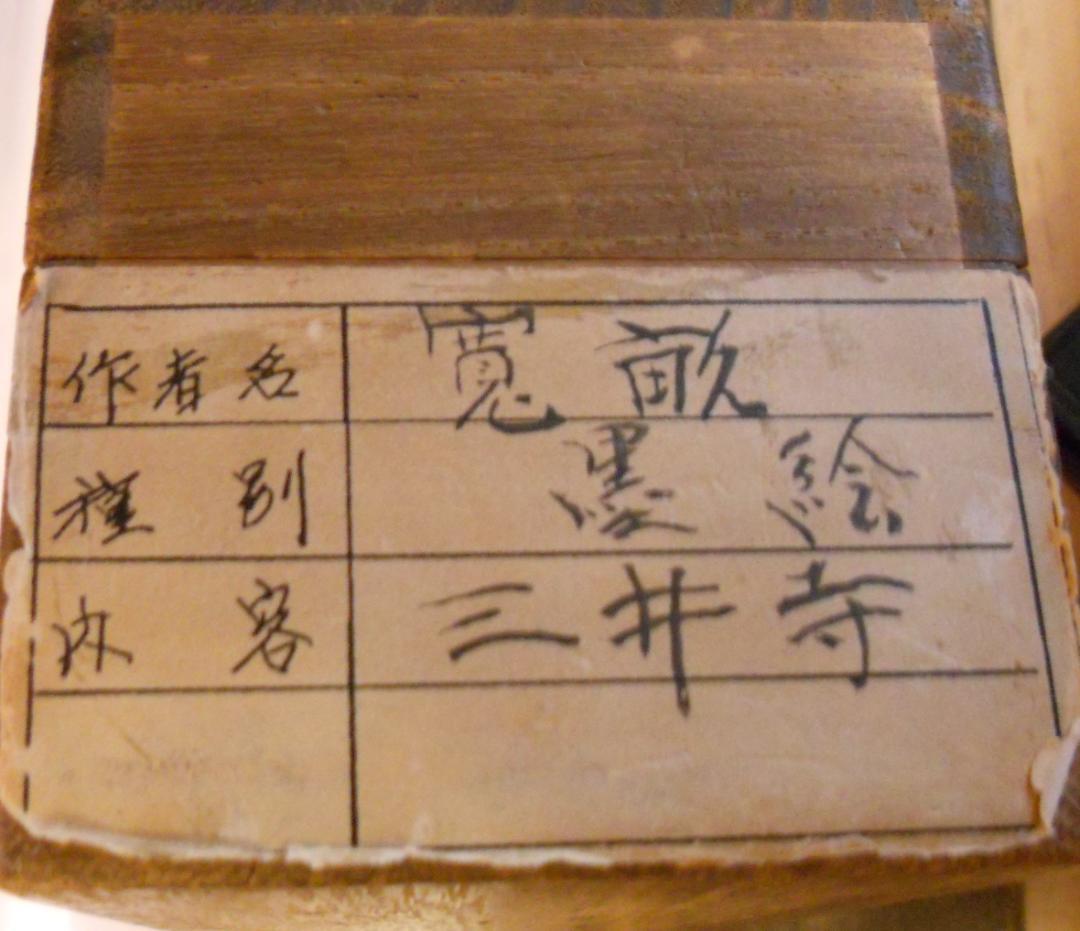 作者名 寛畝
種別 墨絵
内容 三井寺